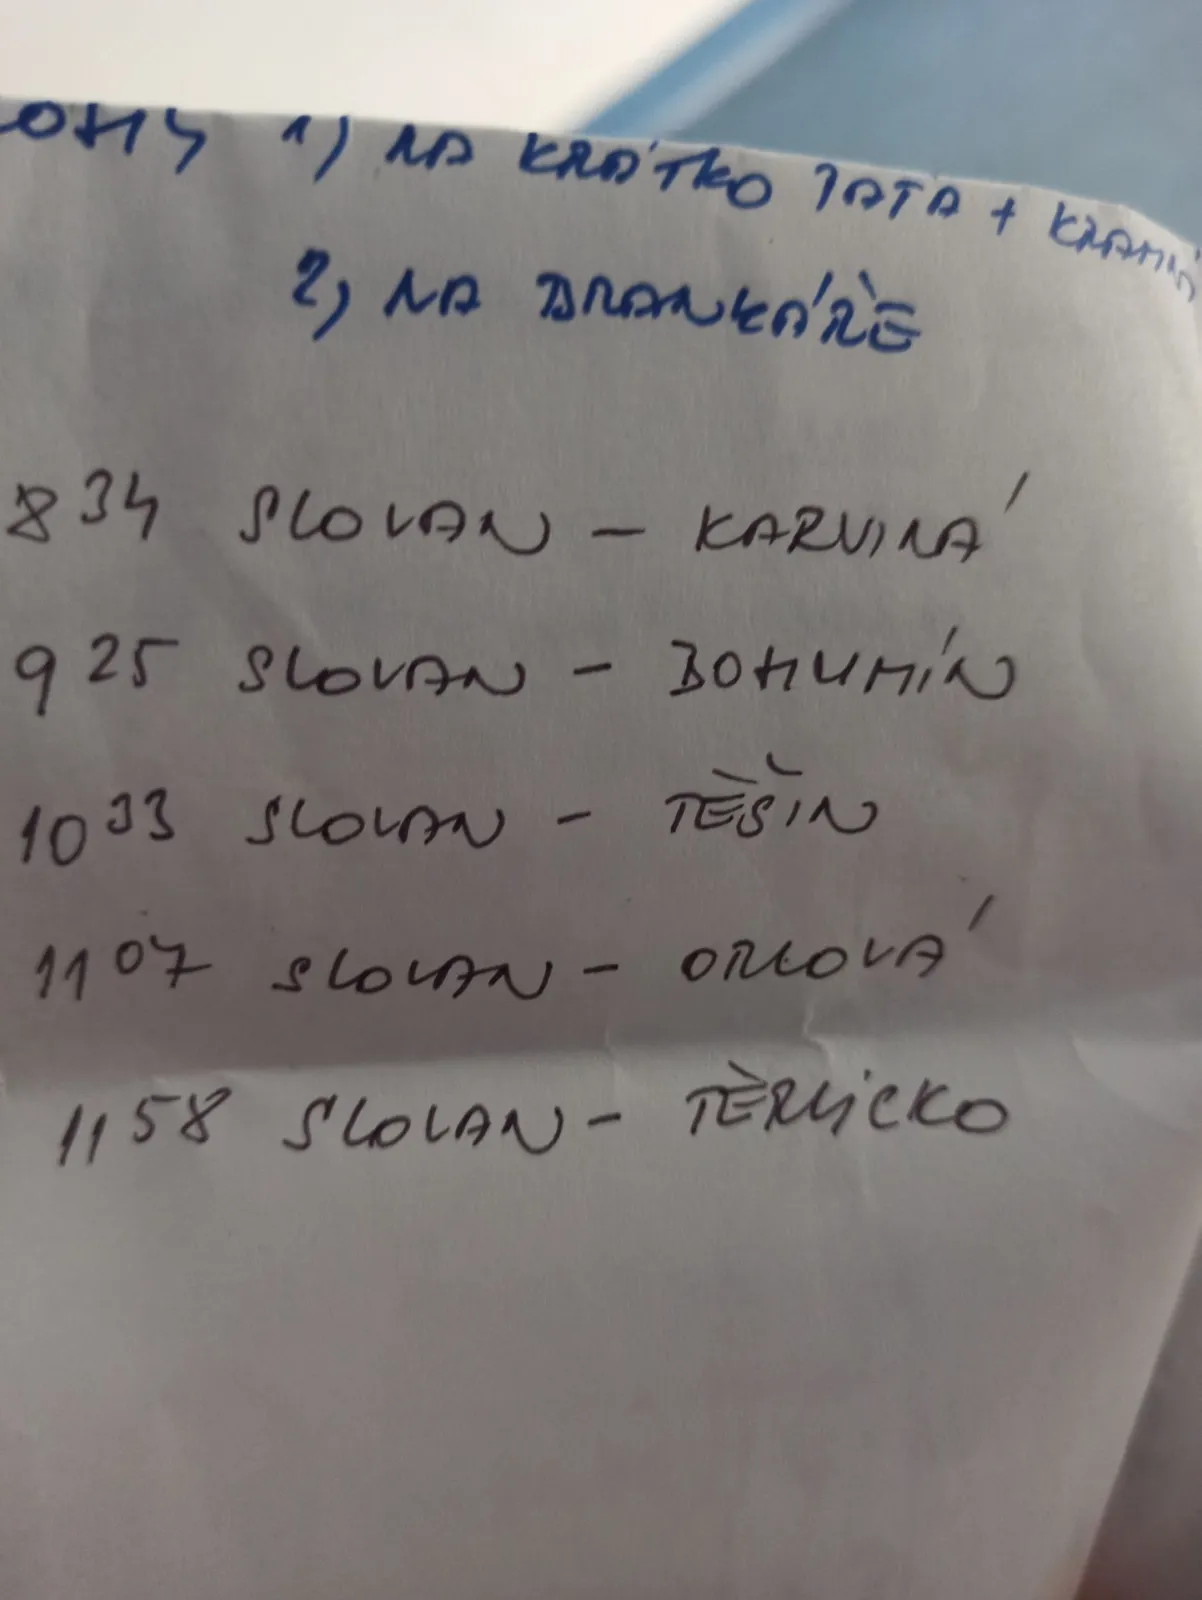 1) NA KRÁTKO TÁTA +
2) NA BRANKÁŘE
8 34 SLOVAN - KARVINÁ
9 25 SLOVAN - BOHUMÍN
10 33 SLOVAN - TĚŠIN
11 07 SLOVAN - ORLOVÁ
11 58 SLOVAN - TĚRLICKO